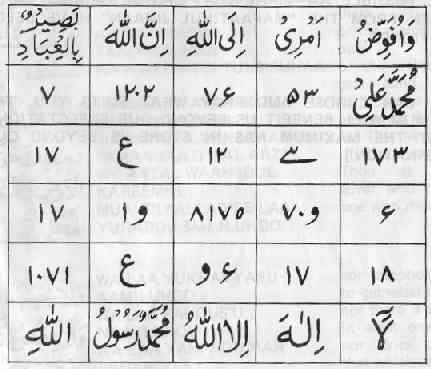 وَاُفَوِّضُ اَمْرِیْ اِلَی اللهِ اِنَّ اللهَ بَصِیْرٌ بِالْعِبَادِ
مُحَمَّد عَلِیْ ۵۳ ۷۶ ۱۲۰۲ ۷
۱۷۳ سے ۱۲ ع ۱۷
۶ و۷۰ ۸۱۷۵ و۱ ۱۷
۱۸ ۱۷ ۶و ع ۱۰۷۱
لَآ اِلٰهَ اِلَّا اللهُ مُحَمَّدٌ رَّسُوْلُ اللهِ